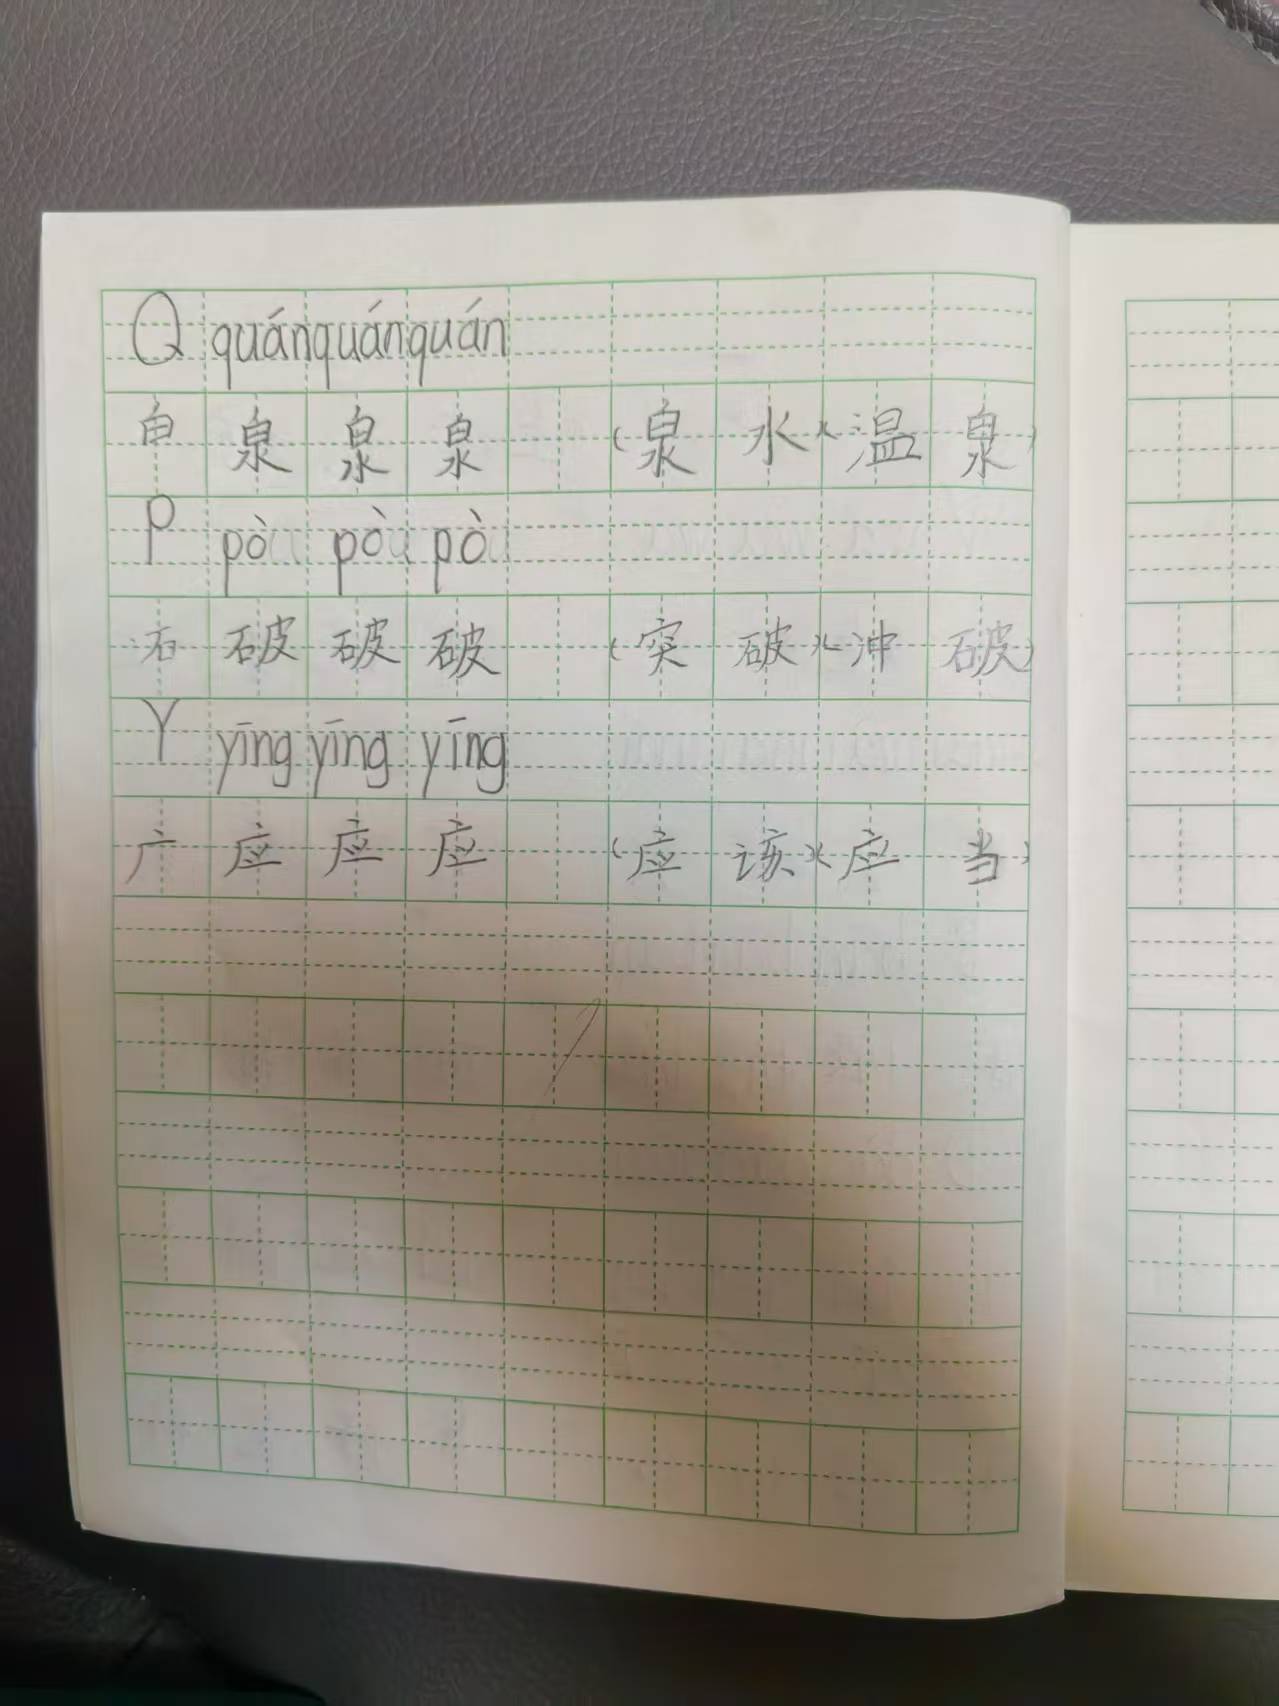 Q quán quán quán
白 泉 泉 泉 (泉水)(温泉)
P pò pò pò
石 破 破 破 (突破)(冲破)
Y yīng yīng yīng
广 应 应 应 (应该)(应当)